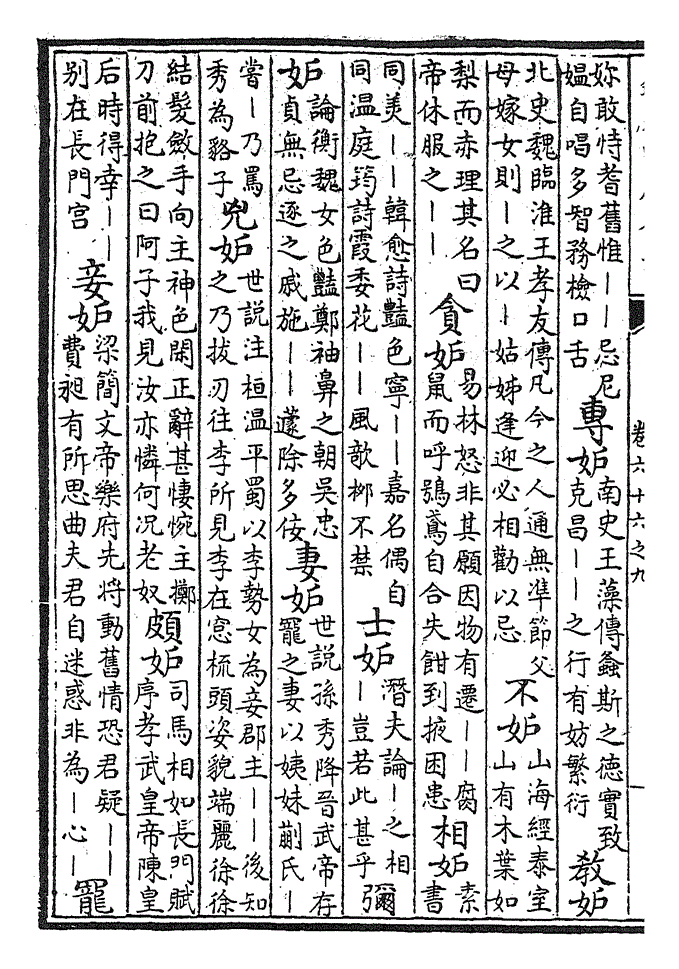 卷六十六之九
妳敢恃耆舊惟——忌尼
媪自唱多智務檢口舌
專妒
南史王藻傳螽斯之德實致
克昌——之行有妨繁衍
教妒
北史魏臨淮王孝友傳凡今之人通無準節父
母嫁女則—之以—姑姊逢迎必相勸以忌
不妒
山海經泰室
山有木葉如
梨而赤理其名曰
帝休服之——
貪妒
易林怒非其願因物有遷——腐
鼠而呼鵶鳶自合失餌到掖困患
相妒
素
書
同美——韓愈詩豔色寧——嘉名偶自
同温庭筠詩霞委花——風歌柳不禁
士妒
潛夫論—之相
—豈若此甚乎
彌
妒
論衡魏女色豔鄭袖鼻之朝吳忠
貞無忌逐之戚施——蘧除多佞
妻妒
世說孫秀降晉武帝存
寵之妻以姨妹蒯氏—
嘗—乃罵
秀為貉子
兇妒
世說注桓温平蜀以李勢女為妾郡主——後知
之乃拔刃往李所見李在窓梳頭姿貌端麗徐徐
結髮斂手向主神色閑正辭甚悽惋主擲
刀前抱之曰阿子我見汝亦憐何况老奴
頗妒
司馬相如長門賦
序孝武皇帝陳皇
后時得幸——
别在長門宫
妾妒
梁簡文帝樂府先將動舊情恐君疑——
費昶有所思曲夫君自迷惑非為—心—
寵